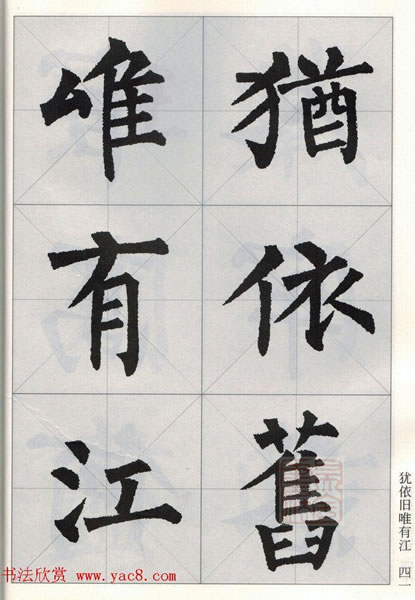 猶依舊
唯有江
犹依旧唯有江 四一
书法欣赏 www.yac8.com